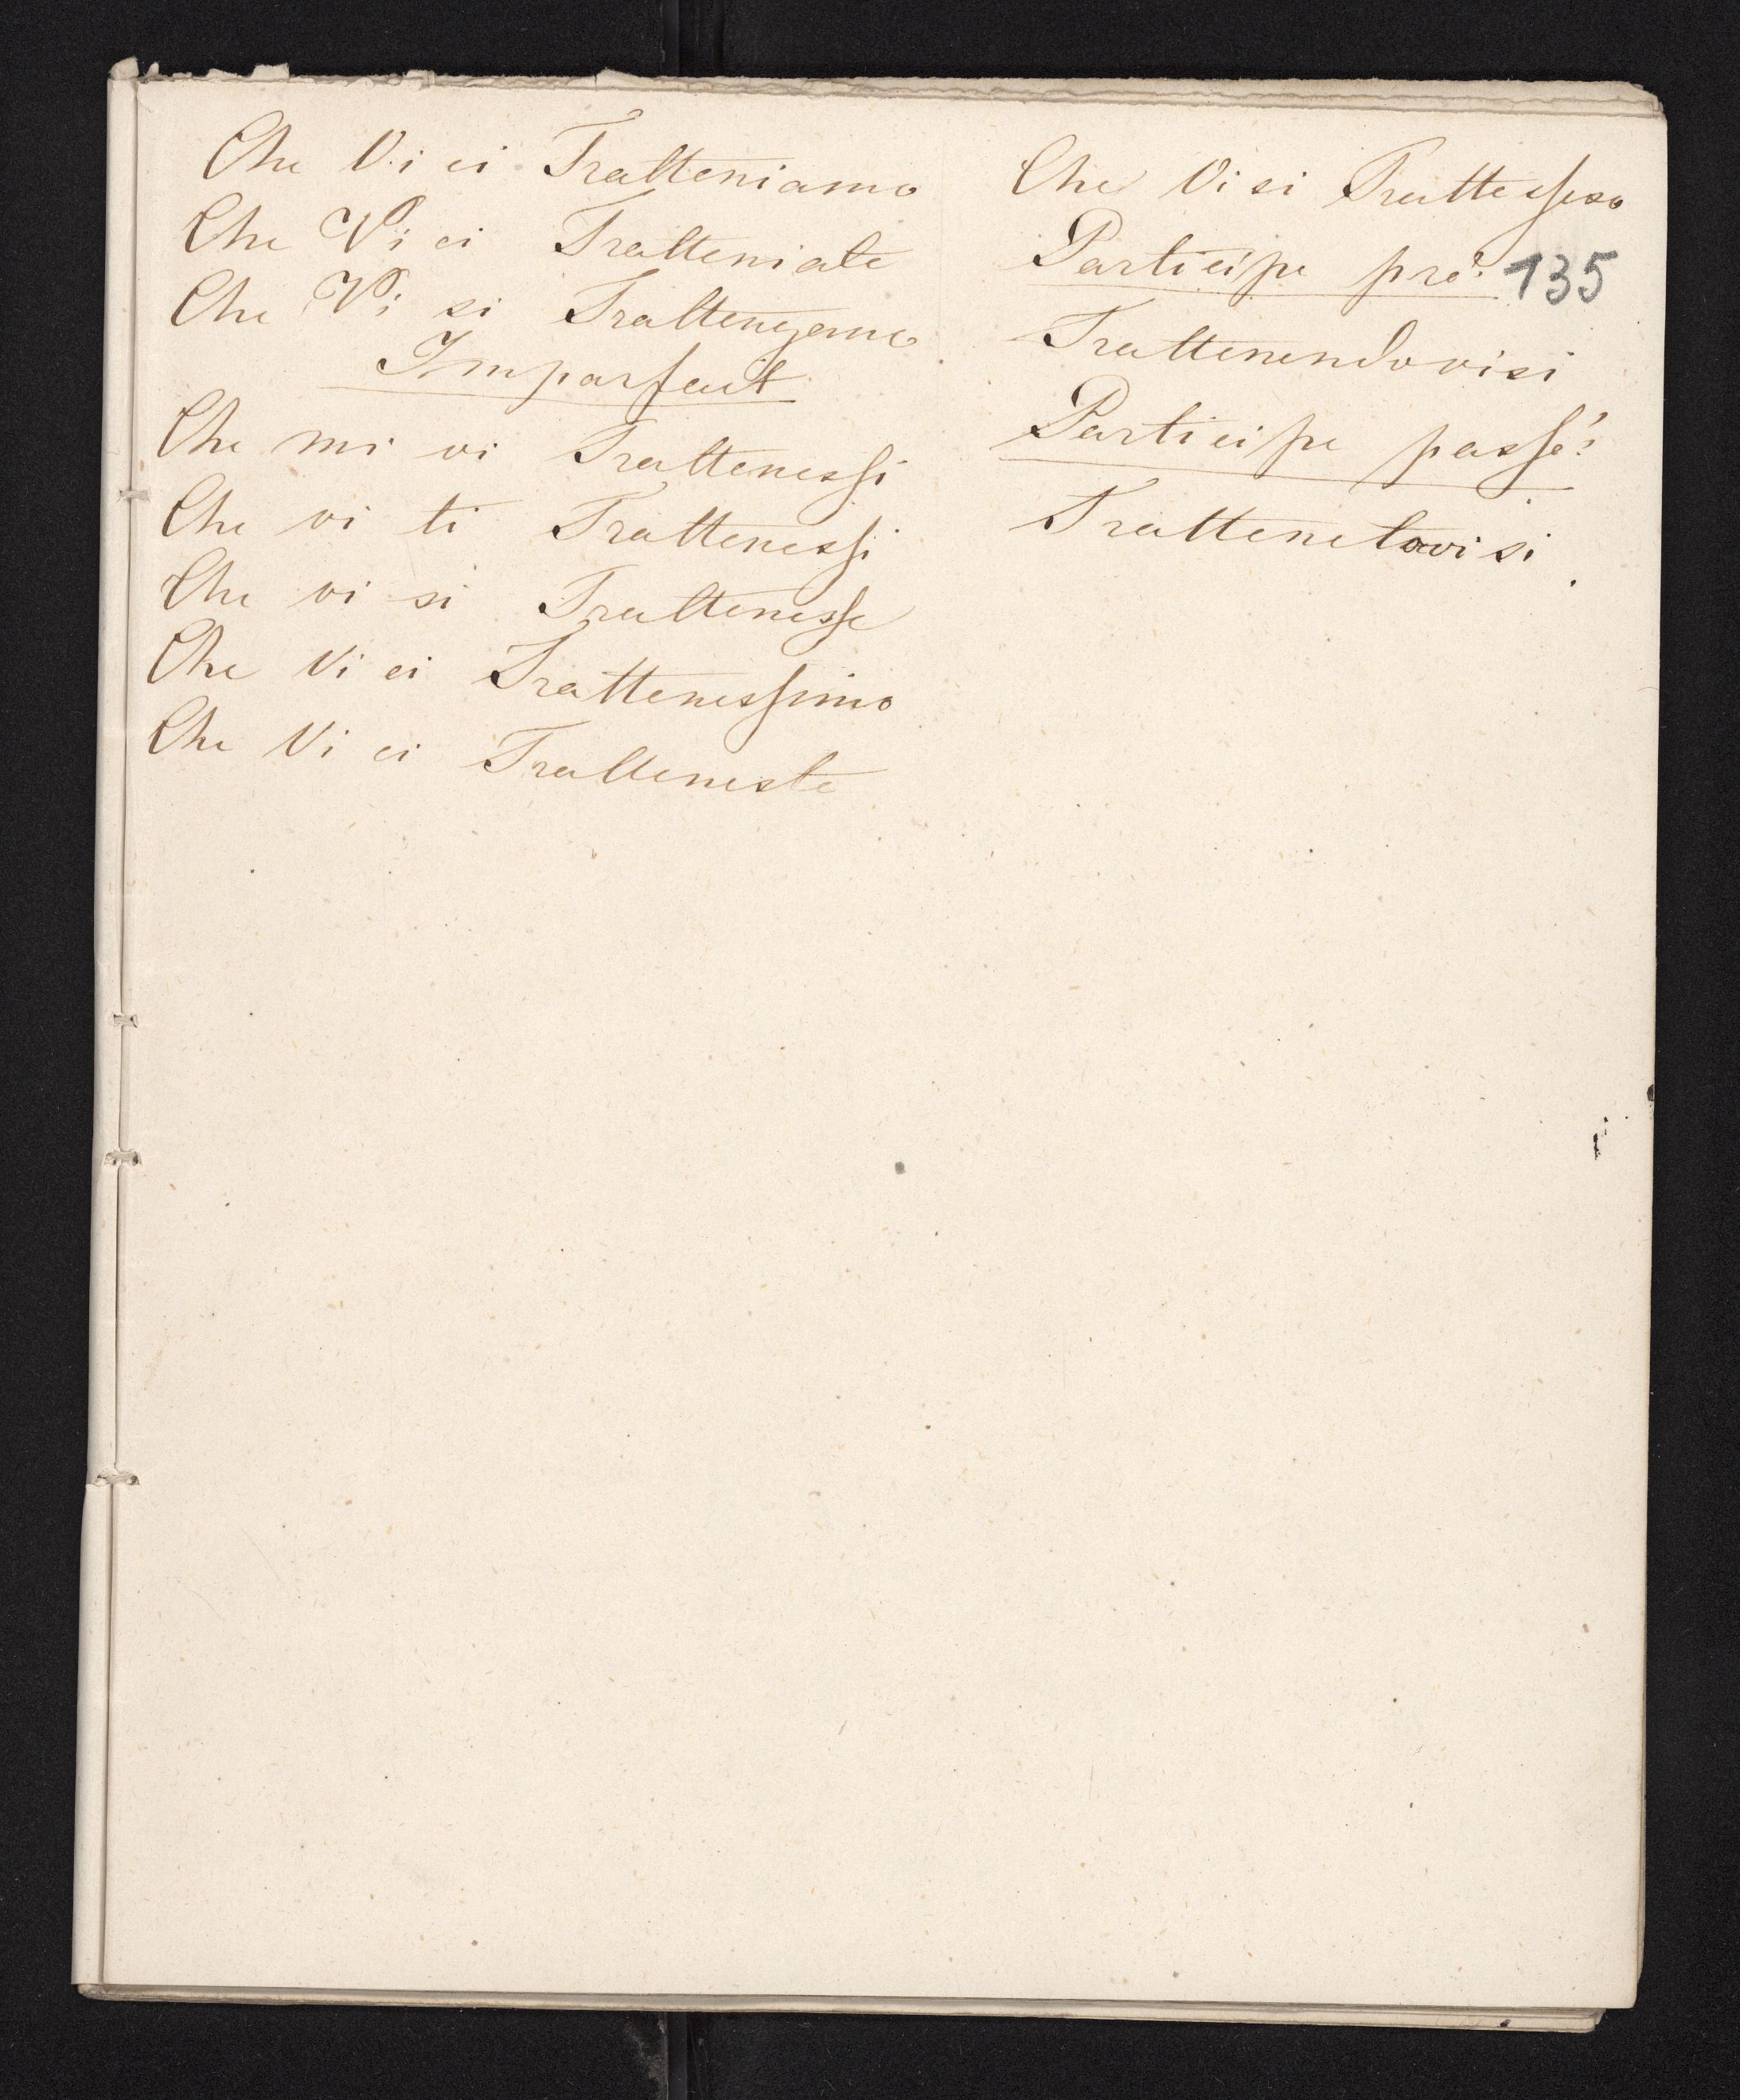 Che Vi ci Tratteniamo
Che Vi ci Tratteniate
Che Vi si Trattengano
Imparfait
Che mi vi Trattenessi
Che vi ti Trattenessi
Che vi si Trattenesse
Che Vi ci Trattenessimo
Che Vi ci Tratteneste
Che Vi si Trattessero
Participe pré:
135
Trattenendovisi
Participe passé:
Trattenetovisi